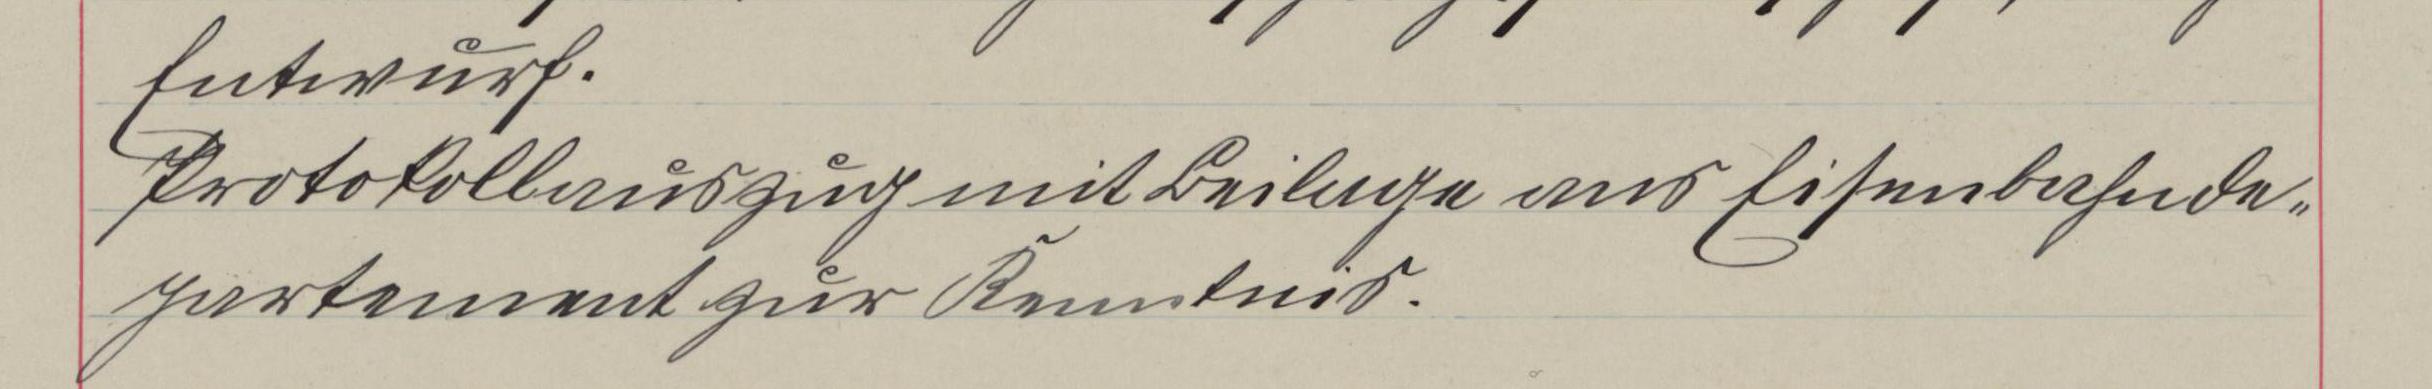 Entwurf.
Protokollauszug mit Beilage ans Eisenbahnde„
partement zur Kenntnis.